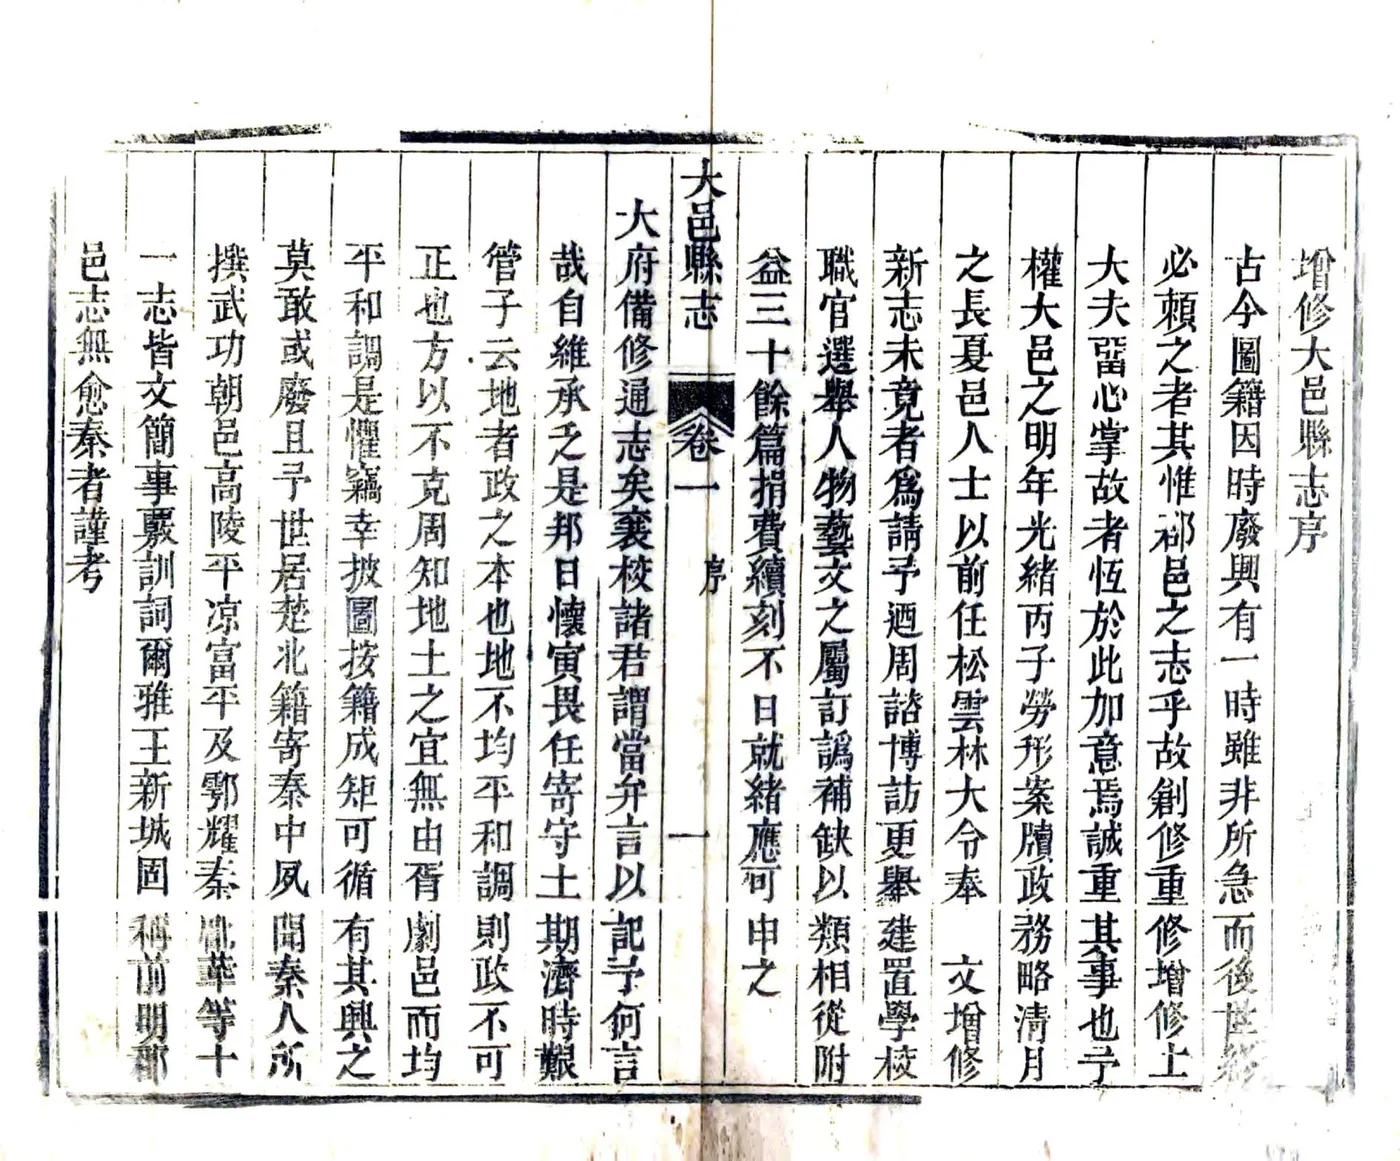 增修大邑縣志序
古今圖籍因時廢興有一時雖非所急而後世終
必賴之者其惟郡邑之志乎故創修重修增修士
大夫留心掌故者恆於此加意焉誠重其事也予
權大邑之明年光緒丙子勞形案牘政務略清月
之長夏邑人士以前任松雲林大令奉 文增修
新志未竟者爲請予迺周諮博訪更舉建置學校
職官選舉人物藝文之屬訂譌補缺以類相從附
益三十餘篇捐費續刻不日就緒應可申之
大邑縣志 卷一 序 一
大府備修通志矣襄校諸君謂當弁言以記予何言
哉自維承乏是邦日懷寅畏任寄守土期濟時艱
管子云地者政之本也地不均平和調則政不可
正也方以不克周知地土之宜無由胥劇邑而均
平和調是懼竊幸披圖按籍成矩可循有其興之
莫敢或廢且予世居楚北籍寄秦中夙聞秦人所
撰武功朝邑高陵平凉富平及鄠耀秦華等十
一志皆文簡事覈訓詞爾雅王新城固稱前明郡
邑志無愈秦者謹考